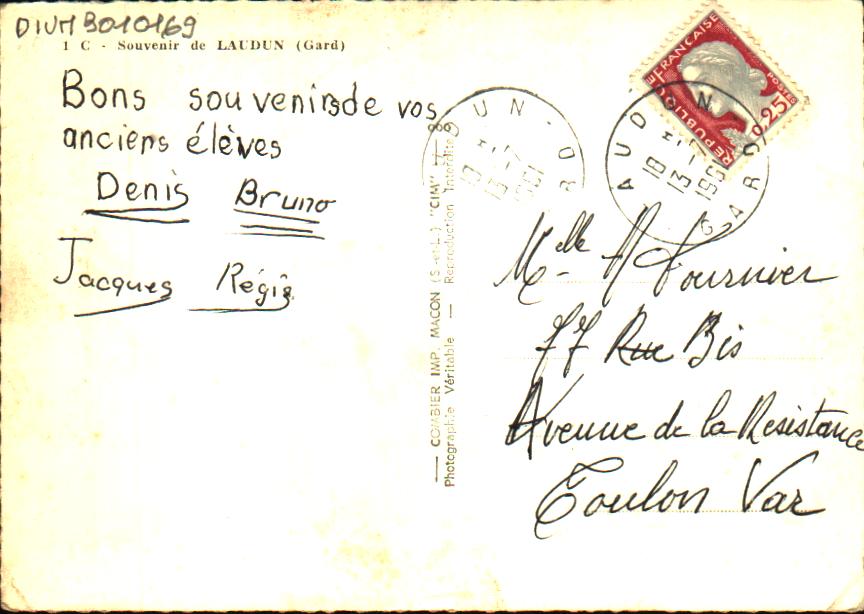 DIVM3010169
1 C - Souvenir de LAUDUN (Gard)
Bons souvenirsde vos
anciens élèves
Denis Bruno
Jacques Régis
COMBIER IMP. MACON (S.-et-L.) "CIM"
Photographie Véritable — Reproduction Interdite
REPUBLIQUE FRANÇAISE
POSTES
0,25
LAUDUN
18 H
13 - 7
1961
GARD
Melle M Fournier
77 Rue Bis
Avenue de la Resistance
Toulon Var